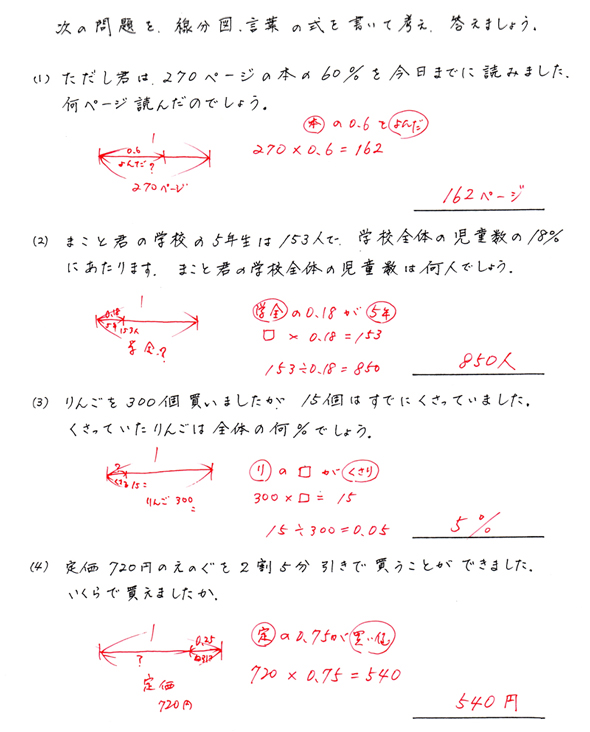 次の問題を、線分図、言葉の式を書いて考え、答えましょう。
(1) ただし君は、270ページの本の60%を今日までに読みました。
何ページ読んだのでしょう。
1
0.6
よんだ?
270ページ
本の0.6をよんだ
270×0.6=162
162ページ
(2) まこと君の学校の5年生は153人で、学校全体の児童数の18%
にあたります。まこと君の学校全体の児童数は何人でしょう。
1
0.18
5年153人
学全?
学全の0.18が5年
□×0.18=153
153÷0.18=850
850人
(3) りんごを300個買いましたが、15個はすでにくさっていました。
くさっていたりんごは全体の何%でしょう。
1
?
くさり15コ
りんご300コ
りの□がくさり
300×□=15
15÷300=0.05
5%
(4) 定価720円のえのぐを2割5分引きで買うことができました。
いくらで買えましたか。
1
0.25
?
定価
720円
定の0.75が買い値
720×0.75=540
540円